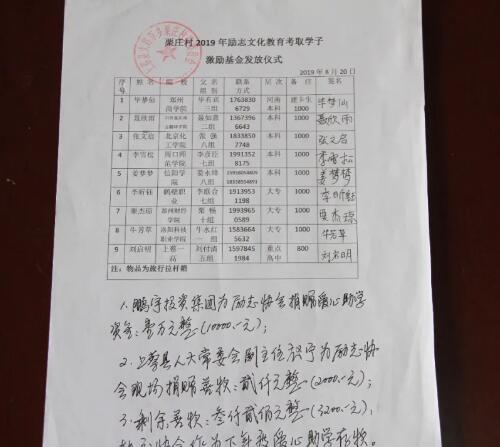 栗庄村2019年励志文化教育考取学子
激励基金发放仪式
2019年8月20日
序号 姓名 院校 父名组别 联系方式 层次 备注 签名
1 毕梦仙 郑州商学院 三组 17638306729 河南本科 建卡生1000 毕梦仙
2 聂欣雨 聂如意二组 13673966643 本科 1000 聂欣雨
3 张文启 北京化工学院 八组 18338507748 本科 1000 张文启
4 李雪松 周口师范学院 李彦臣七组 19913528175 本科 1000 李雪松
5 姜梦梦 信阳学院 姜永峰八组 本科 1000 姜梦梦
6 李昕钰 鹤壁职业 李联合七组 19139531198 大专 1000 李昕钰
7 栗杰琼 郑州财经学院 栗畅十组 19939650589 大专 1000 栗杰琼
8 牛芳草 洛阳科技职业学院 牛水红一组 15836645632 大专 1000 牛芳草
9 刘启明 上蔡一高 刘付清五组 15978451984 重点高中 800 刘启明
注：物品为旅行拉杆箱
1.鹏宇投资集团为励志协会捐赠爱心助学
资金:壹万元整(10000.-元);
2.上蔡县人大常委会副主任 为励志协
会现场捐赠善款:贰仟元整(2000.-元);
3.剩余善款:叁仟贰佰元整(3200.-元),
协会作为下年 爱心助学存款。